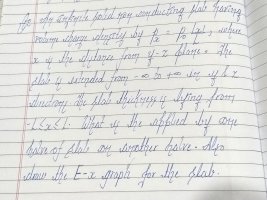 for an infinite solid non conducting slab having
volume charge density by ρ = ρ₀ |x|, where
x is the distance from y-z plane. The
slab is extended from -∞ to +∞ in y & z
directions the slab thickness is lying from
-1<x<1. What is the applied by one
halve of slab on another halve. Also
draw the E-x graph for the slab.